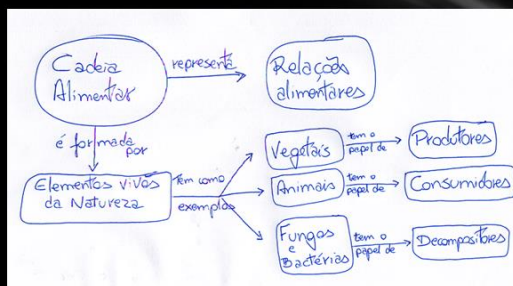 Cadeia
Alimentar
representa
Relações
alimentares
é formada
por
Elementos vivos
da Natureza
tem como
exemplos
Vegetais
tem o
papel de
Produtores
Animais
tem o
papel de
Consumidores
Fungos
e
Bactérias
tem o
papel de
Decompositores